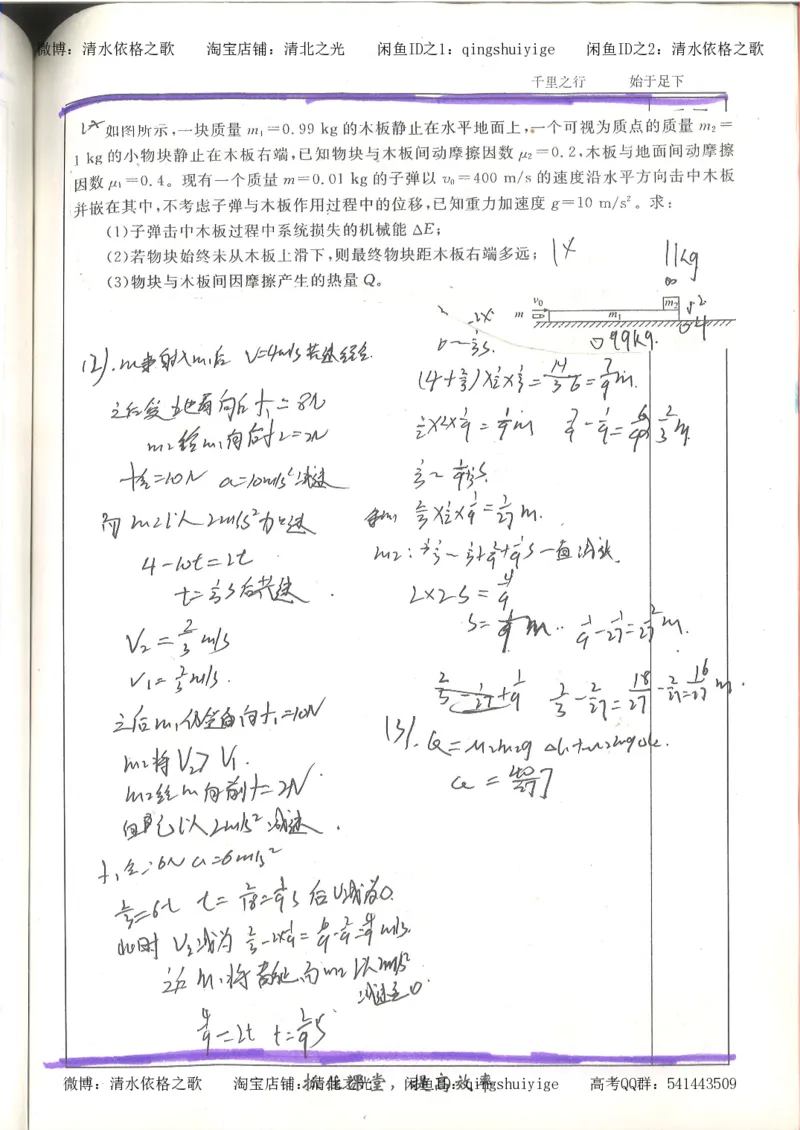 微博：清水依格之歌 淘宝店铺：清北之光 闲鱼ID之1：qingshuiyige 闲鱼ID之2：清水依格之歌
千里之行 始于足下
如图所示,一块质量 m₁=0.99 kg 的木板静止在水平地面上,一个可视为质点的质量 m₂=
1 kg 的小物块静止在木板右端,已知物块与木板间动摩擦因数 μ₂=0.2,木板与地面间动摩擦
因数 μ₁=0.4。现有一个质量 m=0.01 kg 的子弹以 v₀=400 m/s 的速度沿水平方向击中木板
并嵌在其中,不考虑子弹与木板作用过程中的位移,已知重力加速度 g=10 m/s²。求:
(1)子弹击中木板过程中系统损失的机械能 ΔE;
(2)若物块始终未从木板上滑下,则最终物块距木板右端多远;
(3)物块与木板间因摩擦产生的热量 Q。
1kg
v₀
m
m₁
m₂
0.99kg.
(2). m射入m₁后 V=4m/s
f₁=8N
m₂给m₁向后f₂=2N
f合=10N a=10m/s²减速
而m₂以2m/s²加速
4-10t=2t
t=1/3s后共速
V₂=2/3m/s
V₁=2/3m/s.
m₂将V₂>V₁.
m₂给m向前f=2N
a=6m/s²
2/3=6t t=2/18=1/9s后V₁减为0.
此时V₂减为2/3-2×1/9=6/9-2/9=4/9m/s.
4/9=2t t=2/9s
(4+2/3)×1/2×1/3=14/36=7/9m.
1/2×2×1/9=1/9m 7/9-1/9=6/9 2/3m.
2/3×1/2×1/9=1/27m.
m₂: 1/3~1/3+1/9+2/9s一直减速.
2×2·S=4/9
S=1/9m. 1/9-1/27=2/27m.
2/3-2/27=18/27-2/27=16/27m.
(3).
Q=40/27J
微博：清水依格之歌 淘宝店铺：清北之光 闲鱼ID：qingshuiyige 高考QQ群：541443509
抓住课堂，提高效率